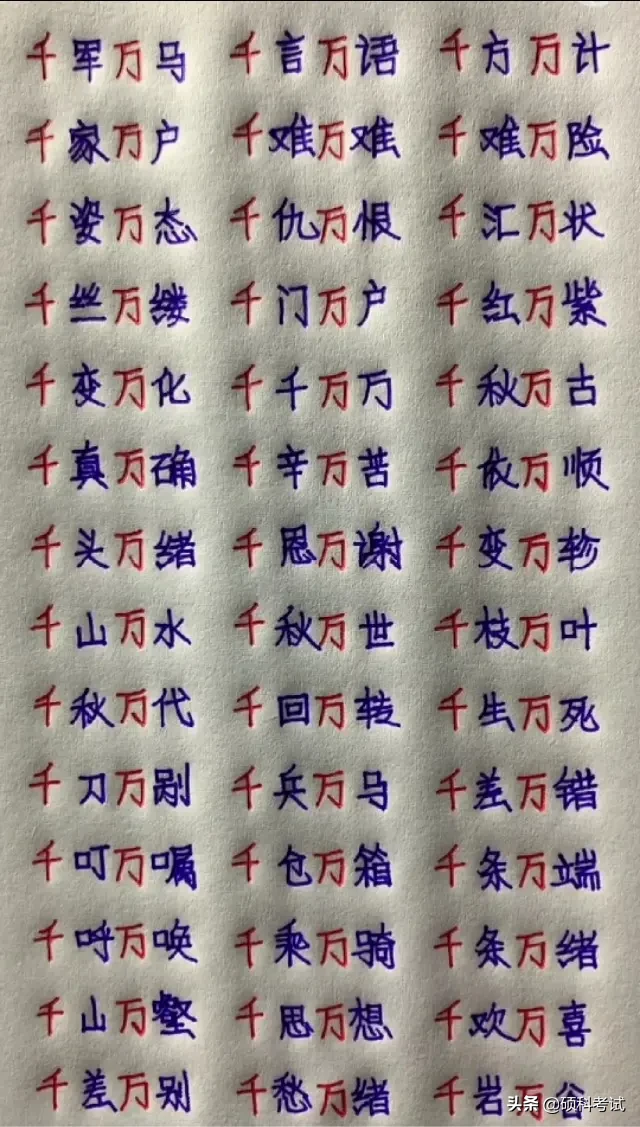 千军万马 千言万语 千方万计
千家万户 千难万难 千难万险
千姿万态 千仇万恨 千汇万状
千丝万缕 千门万户 千红万紫
千变万化 千千万万 千秋万古
千真万确 千辛万苦 千依万顺
千头万绪 千恩万谢 千变万轸
千山万水 千秋万世 千枝万叶
千秋万代 千回万转 千生万死
千刀万剐 千兵万马 千差万错
千叮万嘱 千仓万箱 千条万端
千呼万唤 千乘万骑 千条万绪
千山万壑 千思万想 千欢万喜
千差万别 千愁万绪 千岩万谷
头条 @硕科考试